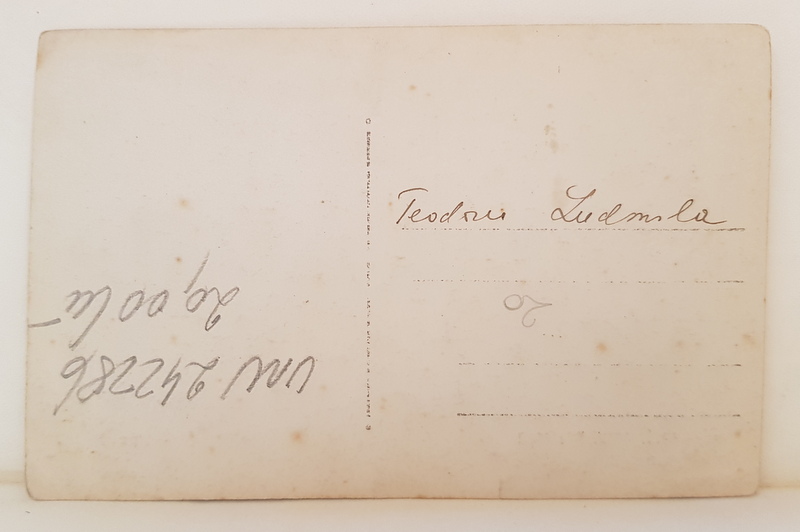 Teodoru Ludmila
20
VNW 242286
20,00 lei